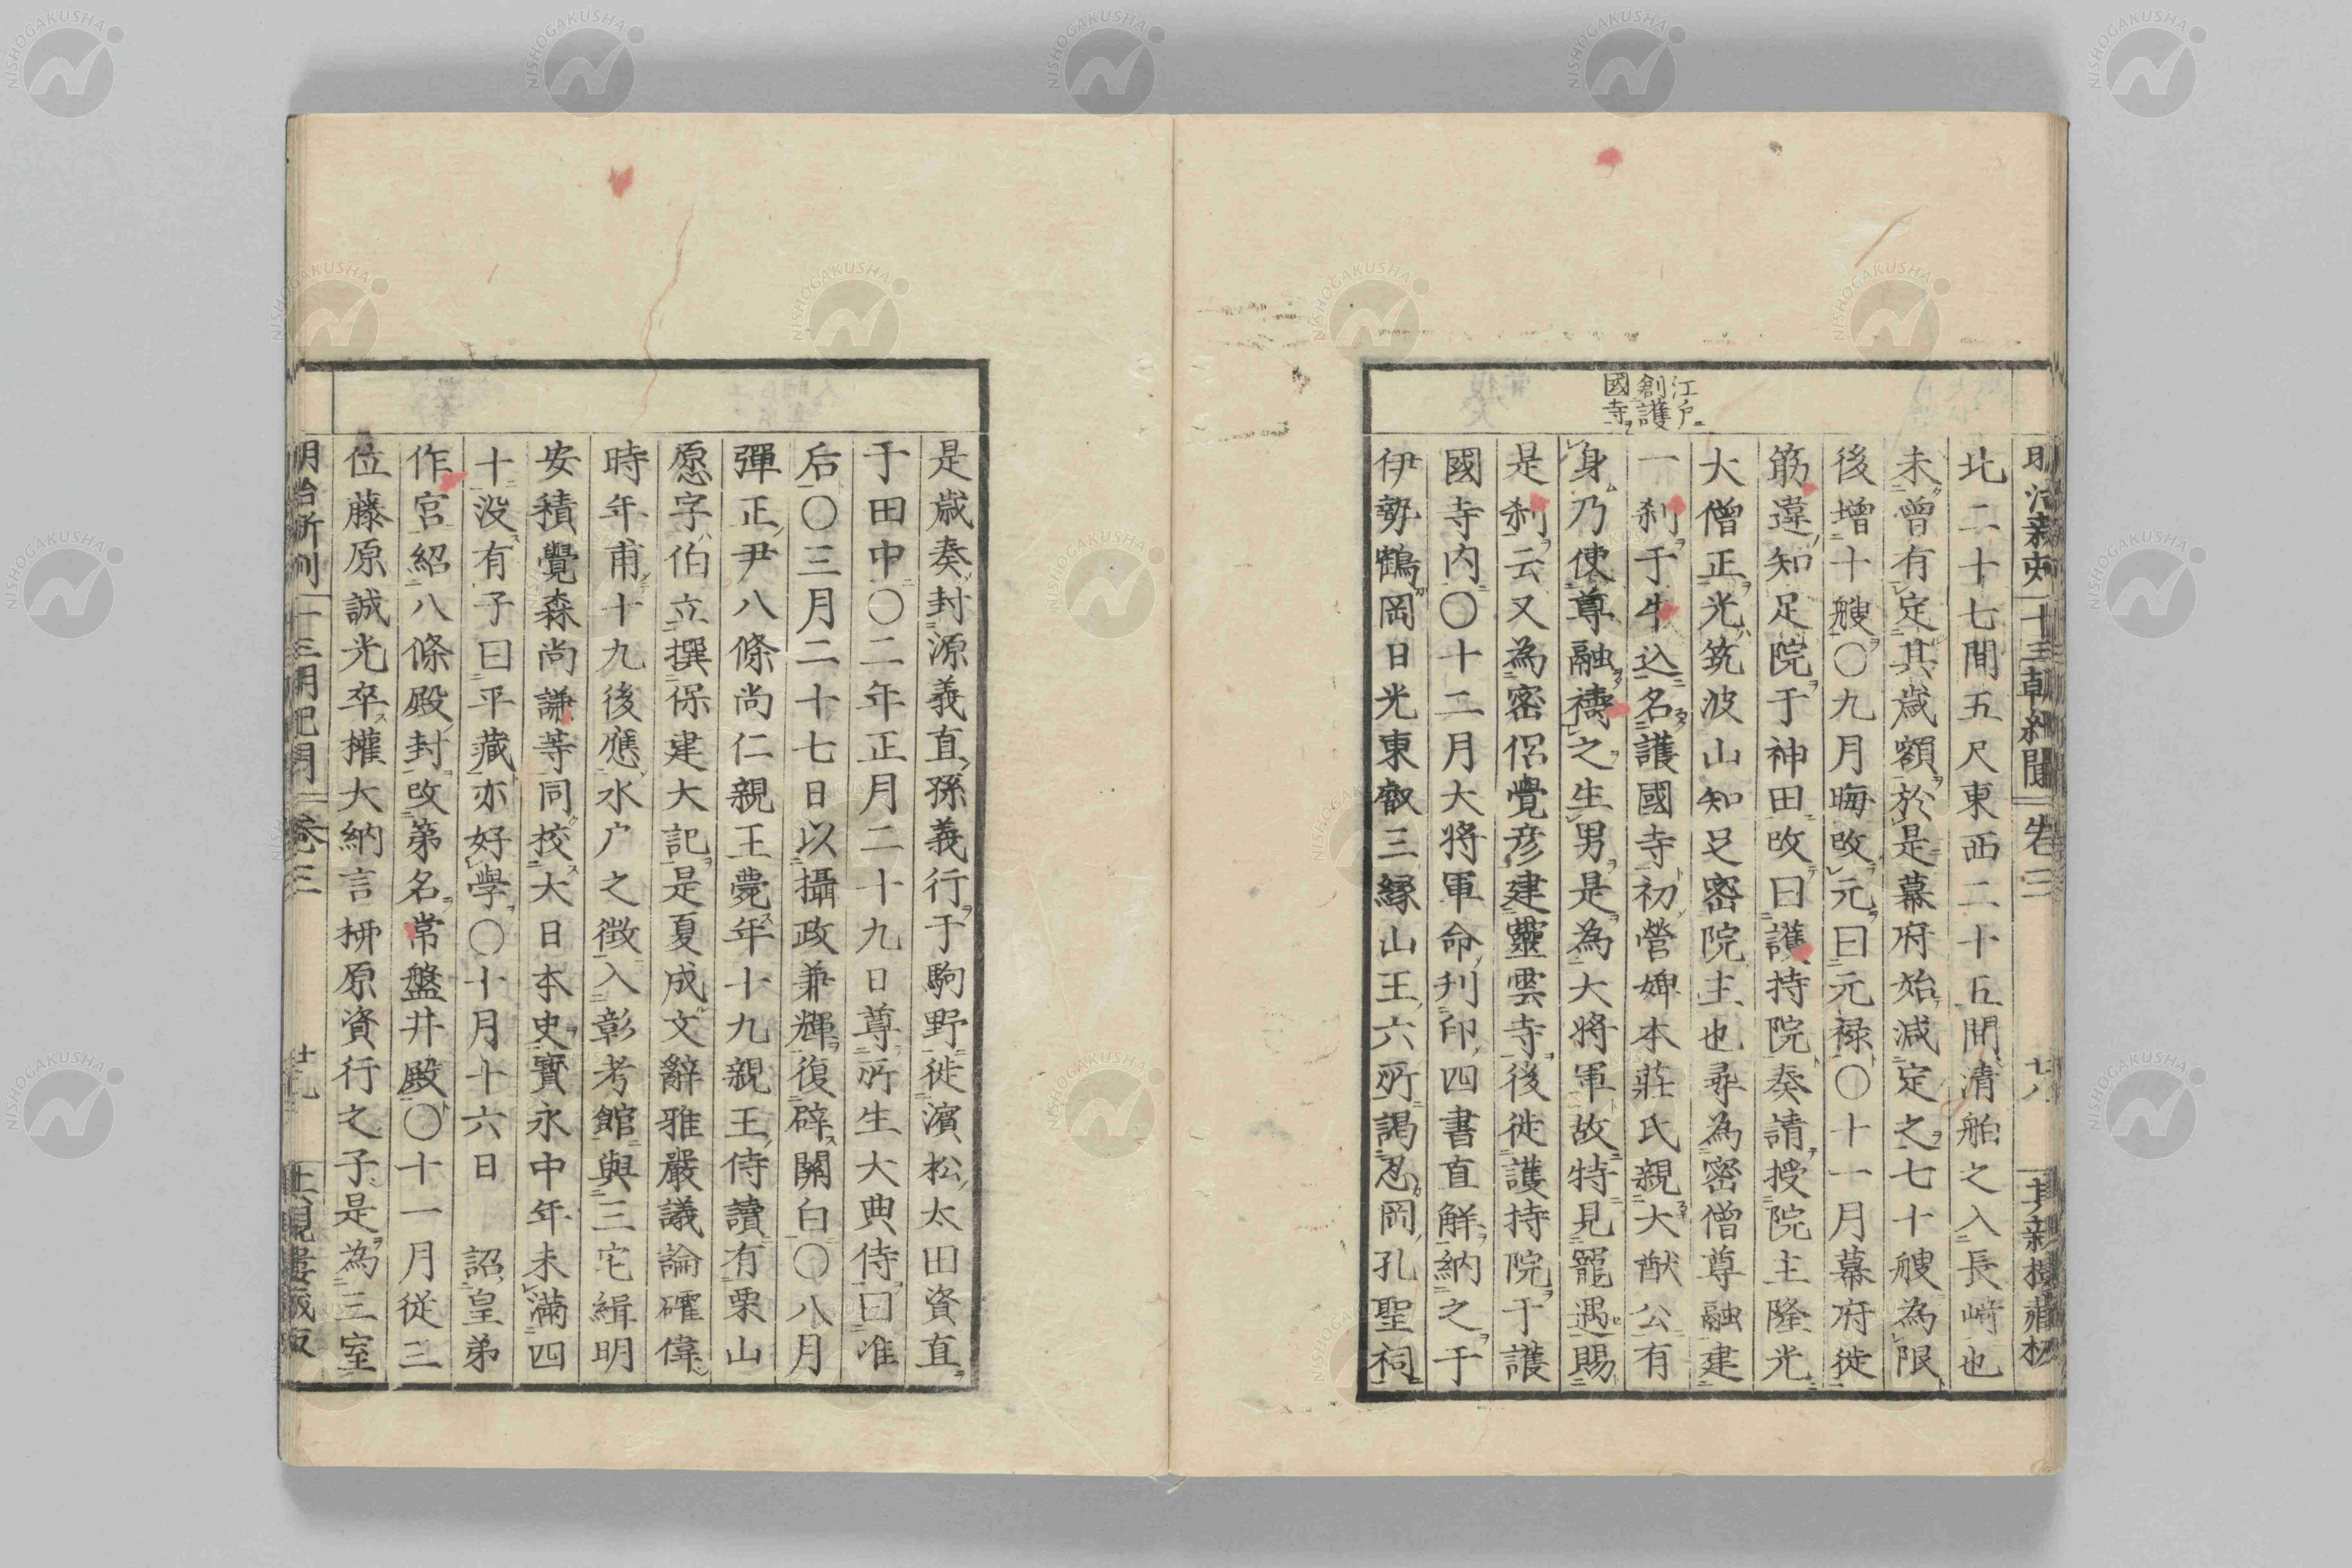 明治新刻 十三朝紀聞 卷三 十八 上親樓藏板
江戸
創護
國寺
北二十七間五尺東西二十五間清舶之入長崎也
未曾有定其歳額於是幕府始減定之七十艘為限
後增十艘〇九月晦改元曰元禄〇十一月幕府徙
筋違知足院于神田改曰護持院奏請授院主隆光
大僧正光筑波山知足密院主也尋為密僧尊融建
一刹于牛込名護國寺初營婢本莊氏親大猷公有
身乃使尊融禱之生男是為大將軍故特見寵遇賜
是刹云又為密侶覺彦建靈雲寺後徙護持院于護
國寺内〇十二月大將軍命刋印四書直解納之于
伊勢鶴岡日光東叡三縁山王六所謁忍岡孔聖祠
是歳奏封源義直孫義行于駒野徙濱松太田資直
于田中〇二年正月二十九日尊所生大典侍曰准
后〇三月二十七日以攝政兼輝復辟關白〇八月
彈正尹八條尚仁親王薨年十九親王侍讀有栗山
愿字伯立撰保建大記是夏成文辭雅嚴議論確偉
時年甫十九後應水户之徴入彰考館與三宅緝明
安積覺森尚謙等同校大日本史寳永中年未滿四
十没有子曰平藏亦好學〇十月十六日 詔皇弟
作宮紹八條殿封改第名常盤井殿〇十一月從三
位藤原誠光卒權大納言栁原資行之子是為三室
明治新刻 十三朝紀聞 卷三 十九 上親樓藏板